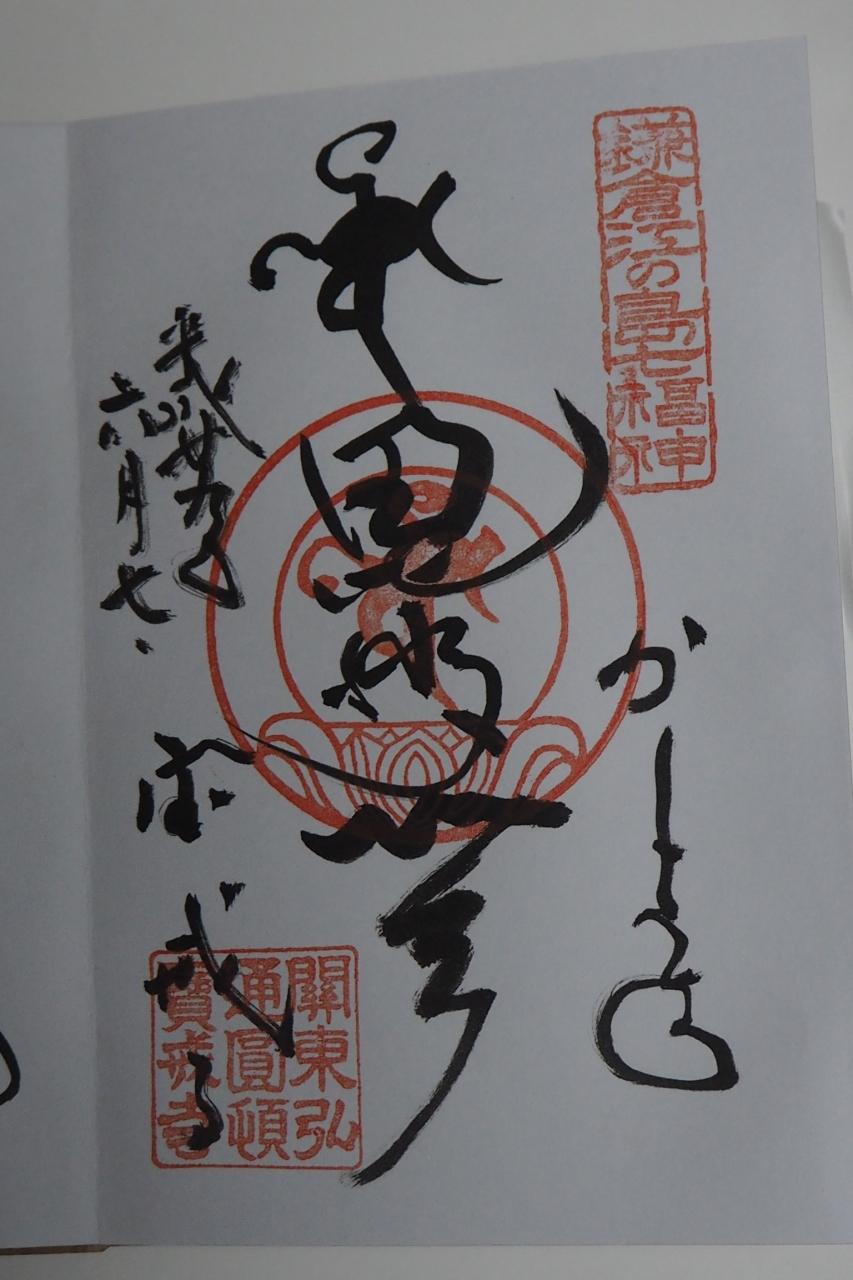 鎌倉江の島七福神
かまくら
毘沙門天
平成廿九年
六月七日
宝戒寺
關東弘
通圓頓
寶戒寺